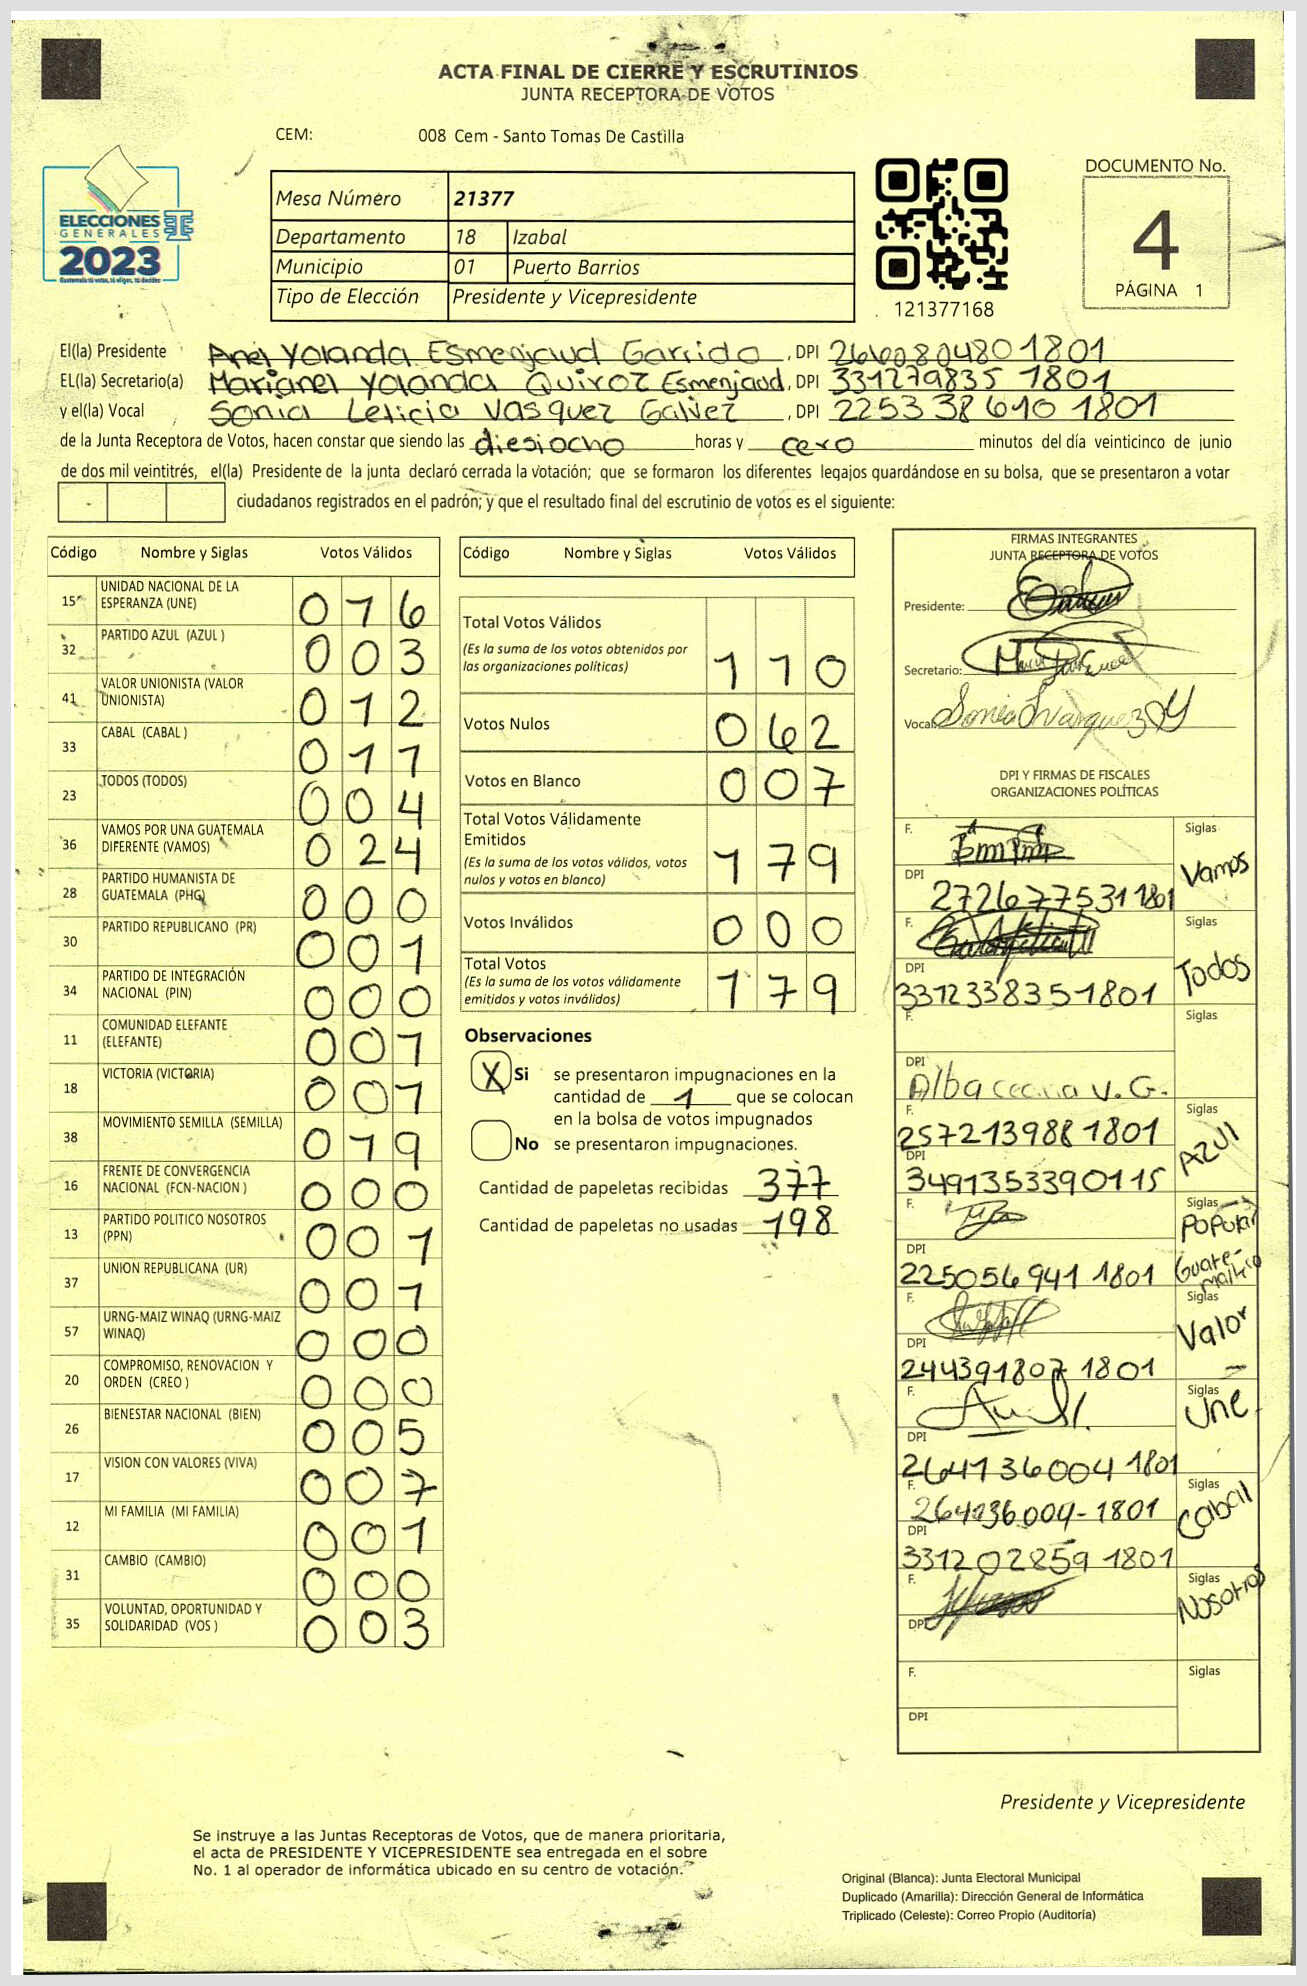 ACTA FINAL DE CIERRE Y ESCRUTINIOS
JUNTA RECEPTORA DE VOTOS
CEM: 008 Cem - Santo Tomas De Castilla
ELECCIONES
GENERALES
2023
Mesa Número 21377
Departamento 18 Izabal
Municipio 01 Puerto Barrios
Tipo de Elección Presidente y Vicepresidente
121377168
DOCUMENTO No.
4
PÁGINA 1
El(la) Presidente Anel Yolanda Esmenjaud Garrido, DPI 2660804801801
EL(la) Secretario(a) Marianel Yolanda Quiroz Esmenjaud, DPI 331279835 1801
y el(la) Vocal Sonia Leticia Vasquez Galvez, DPI 2253 38610 1801
de la Junta Receptora de Votos, hacen constar que siendo las diesiocho horas y cero minutos del día veinticinco de junio
de dos mil veintitrés, el(la) Presidente de la junta declaró cerrada la votación; que se formaron los diferentes legajos quardándose en su bolsa, que se presentaron a votar
ciudadanos registrados en el padrón; y que el resultado final del escrutinio de votos es el siguiente:
Código Nombre y Siglas Votos Válidos
15 UNIDAD NACIONAL DE LA ESPERANZA (UNE) 016
32 PARTIDO AZUL (AZUL ) 003
41 VALOR UNIONISTA (VALOR UNIONISTA) 012
33 CABAL (CABAL ) 011
23 TODOS (TODOS) 004
36 VAMOS POR UNA GUATEMALA DIFERENTE (VAMOS) 024
28 PARTIDO HUMANISTA DE GUATEMALA (PHG) 000
30 PARTIDO REPUBLICANO (PR) 001
34 PARTIDO DE INTEGRACIÓN NACIONAL (PIN) 000
11 COMUNIDAD ELEFANTE (ELEFANTE) 001
18 VICTORIA (VICTORIA) 001
38 MOVIMIENTO SEMILLA (SEMILLA) 019
16 FRENTE DE CONVERGENCIA NACIONAL (FCN-NACION ) 000
13 PARTIDO POLITICO NOSOTROS (PPN) 001
37 UNION REPUBLICANA (UR) 001
57 URNG-MAIZ WINAQ (URNG-MAIZ WINAQ) 000
20 COMPROMISO, RENOVACION Y ORDEN (CREO ) 000
26 BIENESTAR NACIONAL (BIEN) 005
17 VISION CON VALORES (VIVA) 007
12 MI FAMILIA (MI FAMILIA) 001
31 CAMBIO (CAMBIO) 000
35 VOLUNTAD, OPORTUNIDAD Y SOLIDARIDAD (VOS ) 003
Código Nombre y Siglas Votos Válidos
Total Votos Válidos
(Es la suma de los votos obtenidos por
las organizaciones políticas) 110
Votos Nulos 062
Votos en Blanco 007
Total Votos Válidamente
Emitidos
(Es la suma de los votos válidos, votos
nulos y votos en blanco) 179
Votos Inválidos 000
Total Votos
(Es la suma de los votos válidamente
emitidos y votos inválidos) 179
Observaciones
X Si se presentaron impugnaciones en la
cantidad de 1 que se colocan
en la bolsa de votos impugnados
No se presentaron impugnaciones.
Cantidad de papeletas recibidas 377
Cantidad de papeletas no usadas 198
FIRMAS INTEGRANTES
JUNTA RECEPTORA DE VOTOS
Presidente:
Secretario:
Vocal:
DPI Y FIRMAS DE FISCALES
ORGANIZACIONES POLÍTICAS
F. Siglas Vamos
DPI 272677531 1801
F. Siglas Todos
DPI 3312338351801
F. Siglas
DPI Alba Cecilia V. G.
F. 2572139881801 Siglas AZUl
DPI 3491353390115
F. Siglas Popular Guatemalteco
DPI 225056941 1801
F. Siglas Valor
DPI 244391807 1801
F. Siglas Une
DPI 264136004 1801
F. 264136004-1801 Siglas Cabal
DPI 331202859 1801
F. Siglas Nosotros
DPI
F. Siglas
DPI
Presidente y Vicepresidente
Se instruye a las Juntas Receptoras de Votos, que de manera prioritaria,
el acta de PRESIDENTE Y VICEPRESIDENTE sea entregada en el sobre
No. 1 al operador de informática ubicado en su centro de votación.
Original (Blanca): Junta Electoral Municipal
Duplicado (Amarilla): Dirección General de Informática
Triplicado (Celeste): Correo Propio (Auditoría)